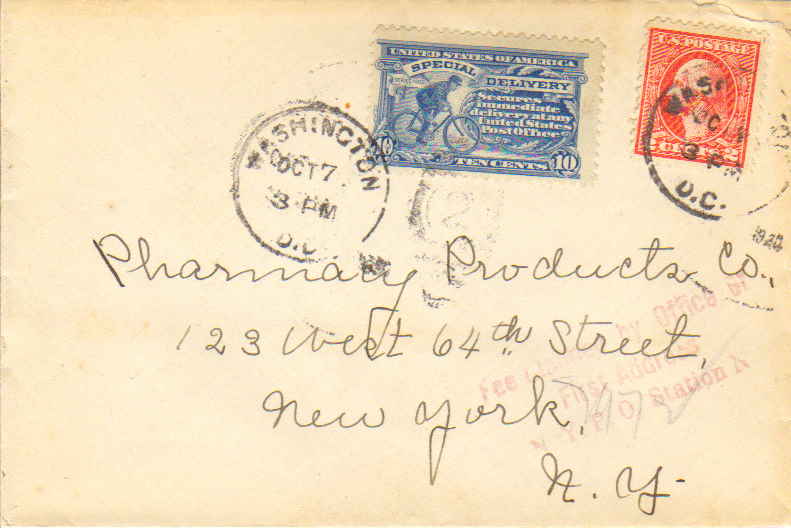 UNITED STATES OF AMERICA
SPECIAL DELIVERY
Secures
immediate
delivery at any
United States
Post Office
TEN CENTS 10
U.S. POSTAGE
WASHINGTON
OCT 7
3 PM
D.C.
WAS
OC
3 PM
D.C.
1920
2
Pharmacy Products Co.,
123 West 64th Street,
New York,
N. Y.
Fee claimed by Office of
First Address
N. Y. P. O. Station N